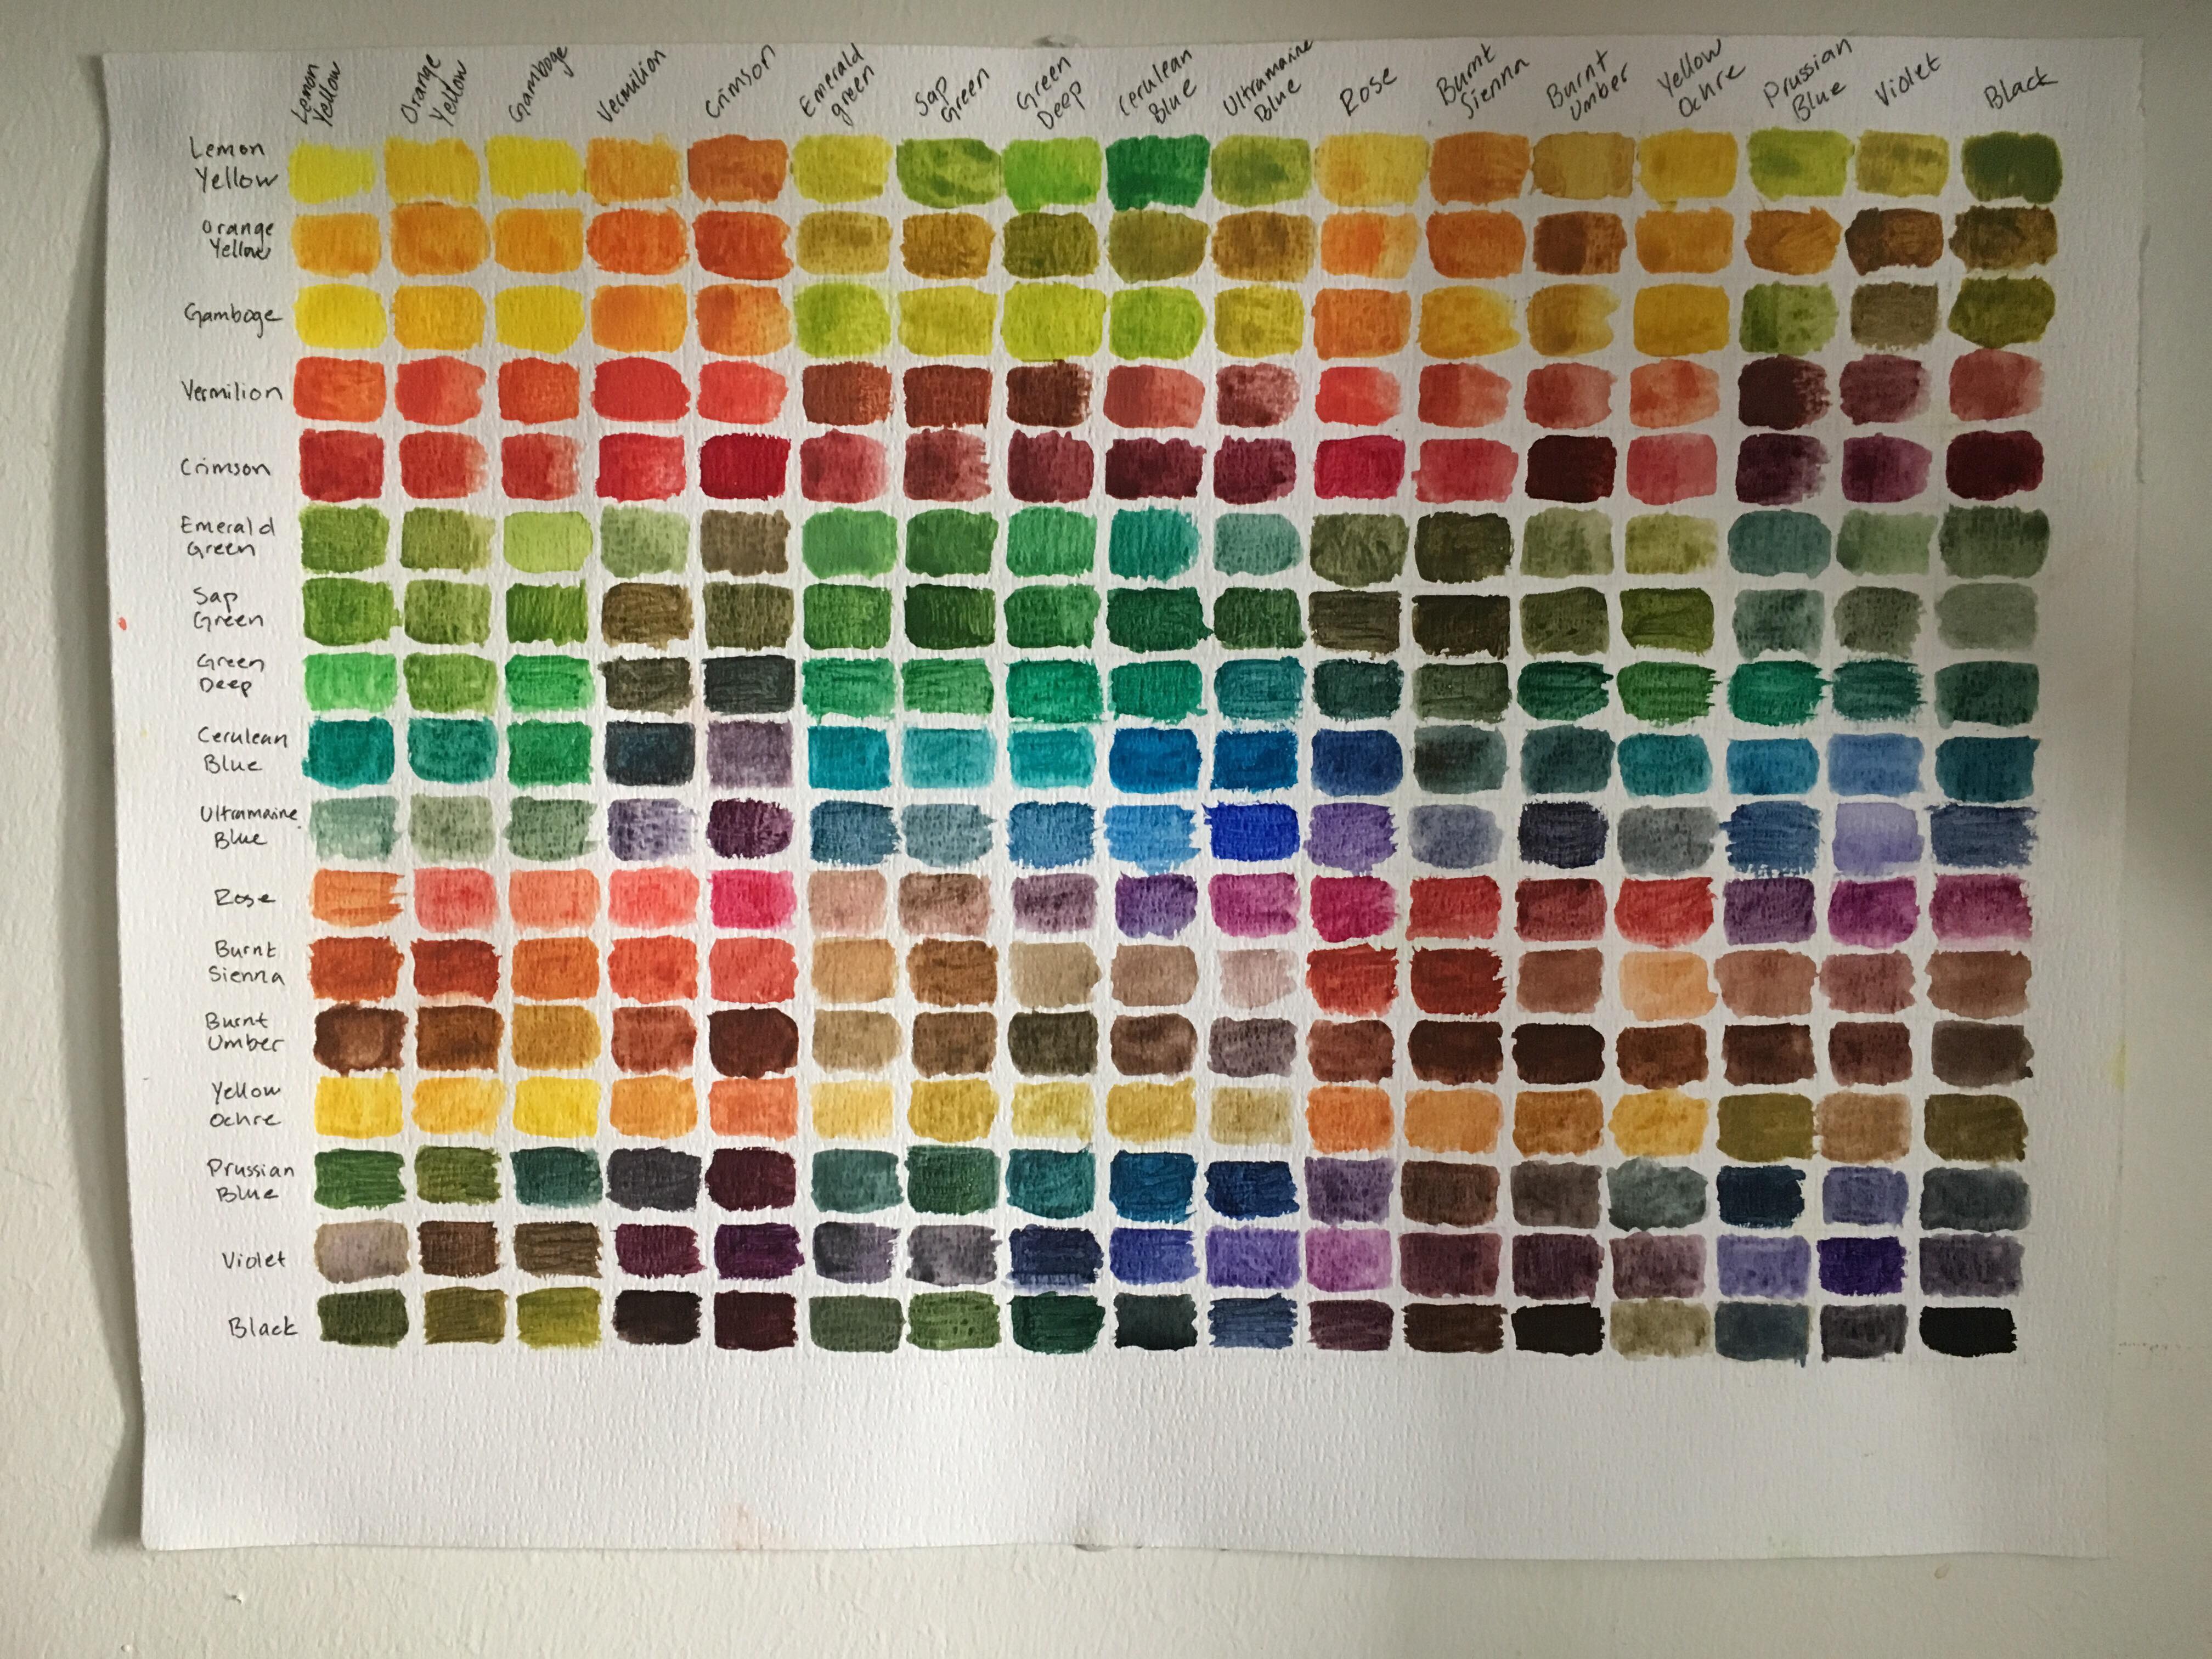 Lemon
Yellow
Orange
Yellow
Gamboge
Vermilion
Crimson
Emerald
green
Sap
Green
Green
Deep
Cerulean
Blue
Ultramarine
Blue
Rose
Burnt
Sienna
Burnt
Umber
Yellow
Ochre
Prussian
Blue
Violet
Black
Lemon
Yellow
Orange
Yellow
Gamboge
Vermilion
Crimson
Emerald
Green
Sap
Green
Green
Deep
Cerulean
Blue
Ultramarine
Blue
Rose
Burnt
Sienna
Burnt
Umber
Yellow
Ochre
Prussian
Blue
Violet
Black